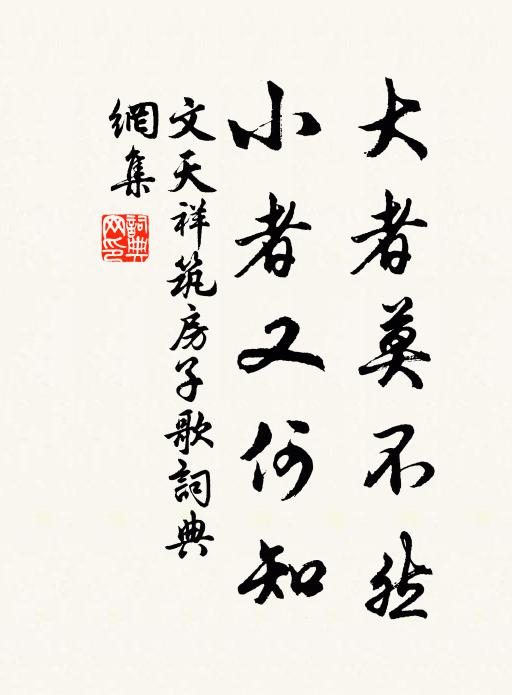 大者莫不然
小者又何知
文天祥筑房子歌詞典
網集
詞典
网印